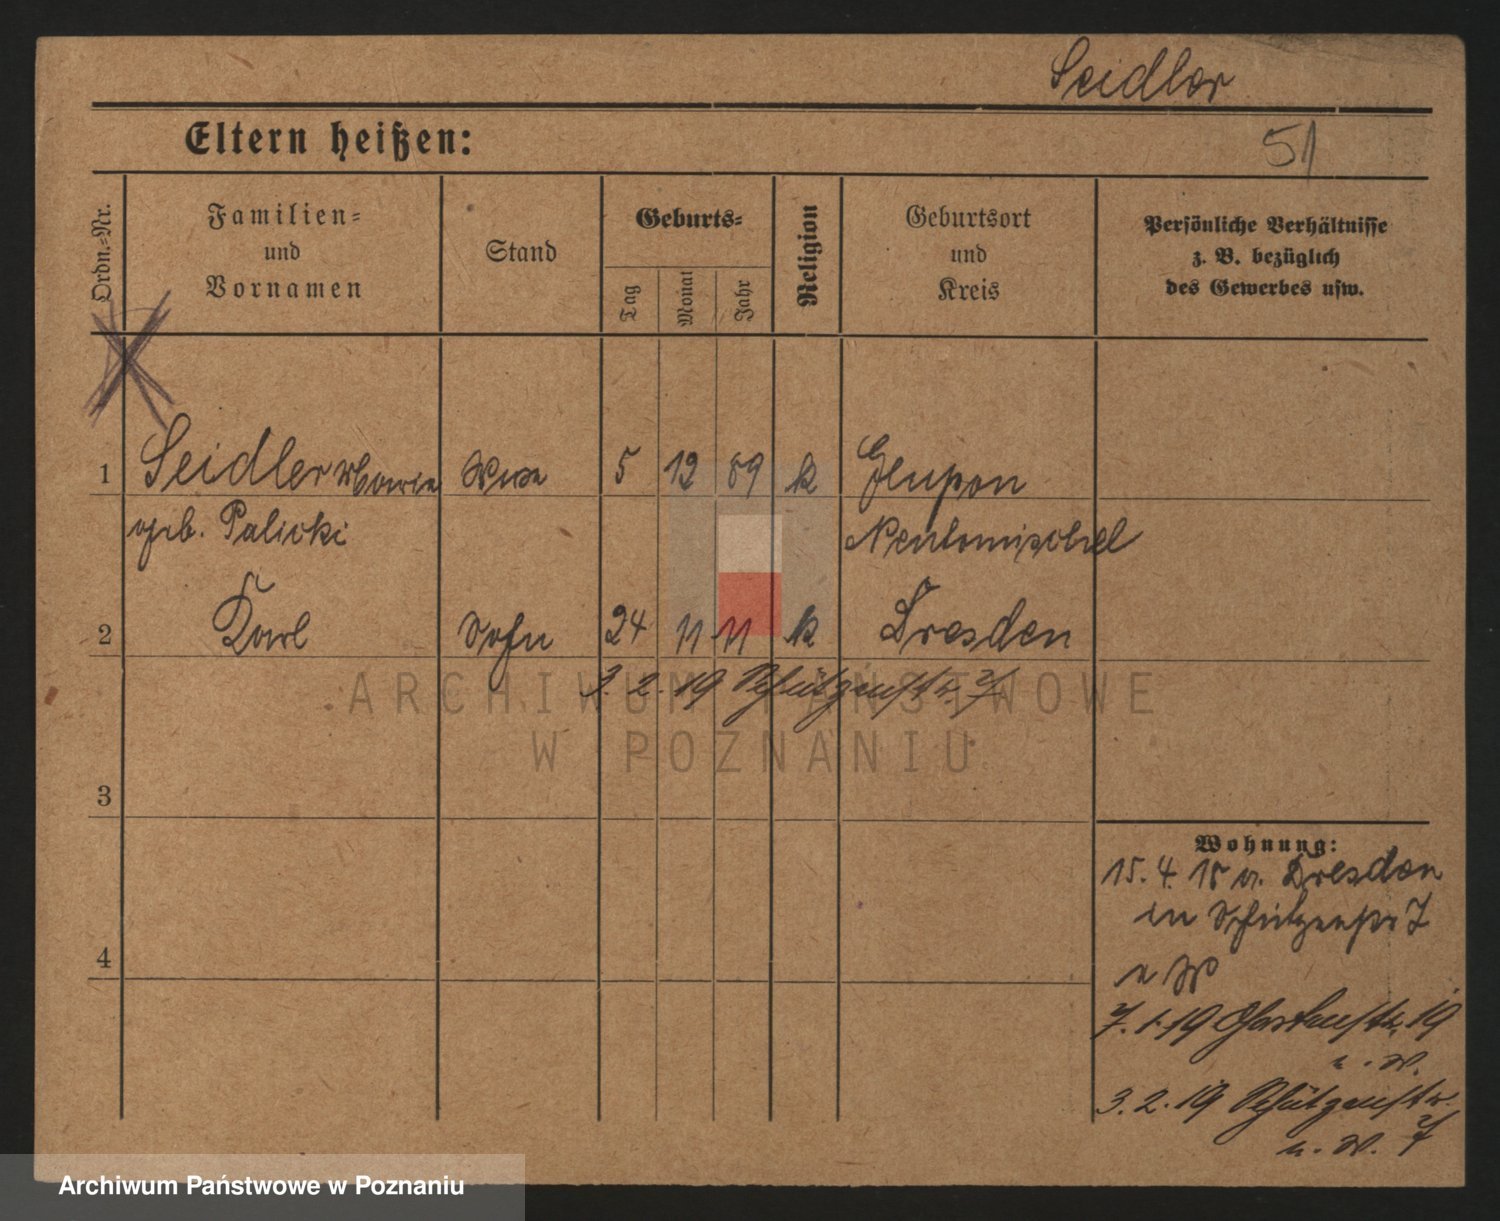 Seidler
Eltern heißen:
51
Ordn.=Nr.
Familien=
und
Vornamen
Stand
Geburts=
Tag
Monat
Jahr
Religion
Geburtsort
und
Kreis
Persönliche Verhältnisse
z. B. bezüglich
des Gewerbes usw.
1 Seidler Marie 5 12 89 k Glupon
geb. Palicki Neutomischel
2 Karl Sohn 24 11 11 k Dresden
3. 2. 19 Schützenstr. 7
ARCHIWUM PAŃSTWOWE
W POZNANIU
3
4
Wohnung:
15. 4. 18 v. Dresden
in Schützenstr 7
7. 1. 19 Gartenstr. 19
3. 2. 19 Schützenstr.
7
Archiwum Państwowe w Poznaniu